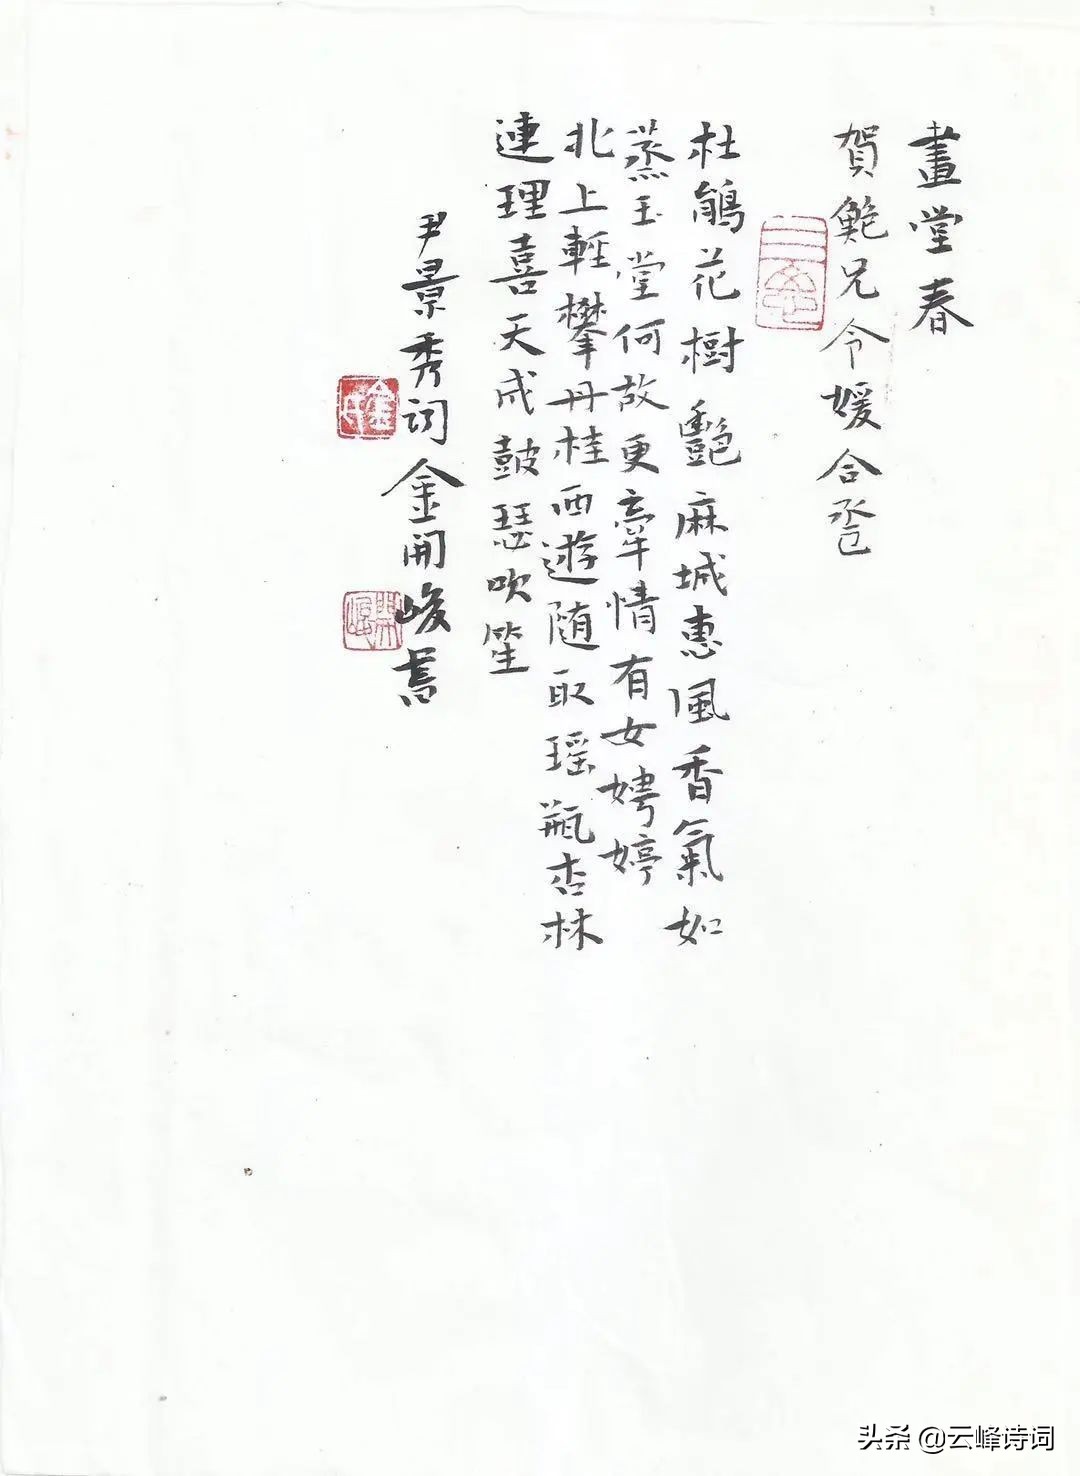 畫堂春
賀鮑兄令媛合巹
杜鵑花樹艷麻城惠風香氣如
蒸玉堂何故更牽情有女娉婷
北上輕攀丹桂西遊随取瑶瓶杏林
連理喜天成鼓瑟吹笙
尹景秀词金開峻書
头条@云峰诗词